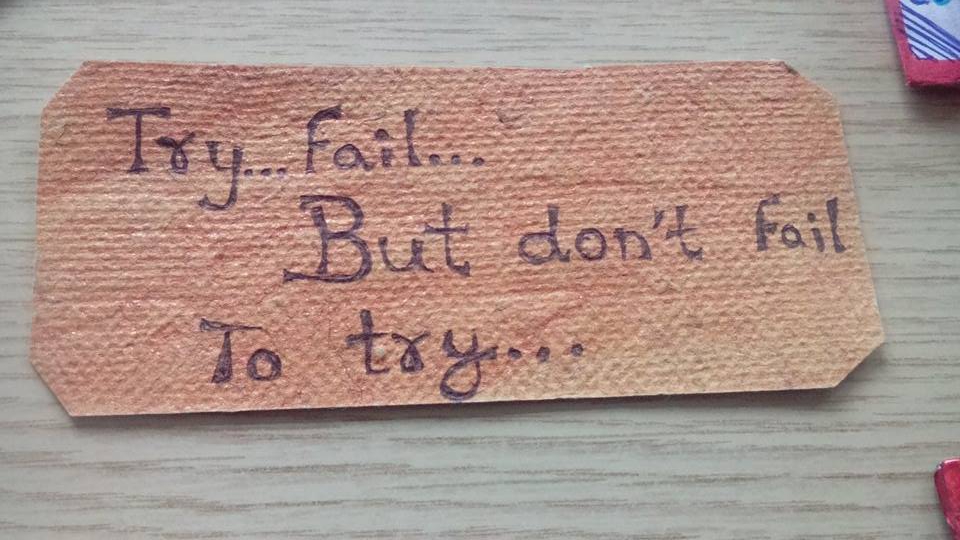 Try... fail...
But don't fail
To try...